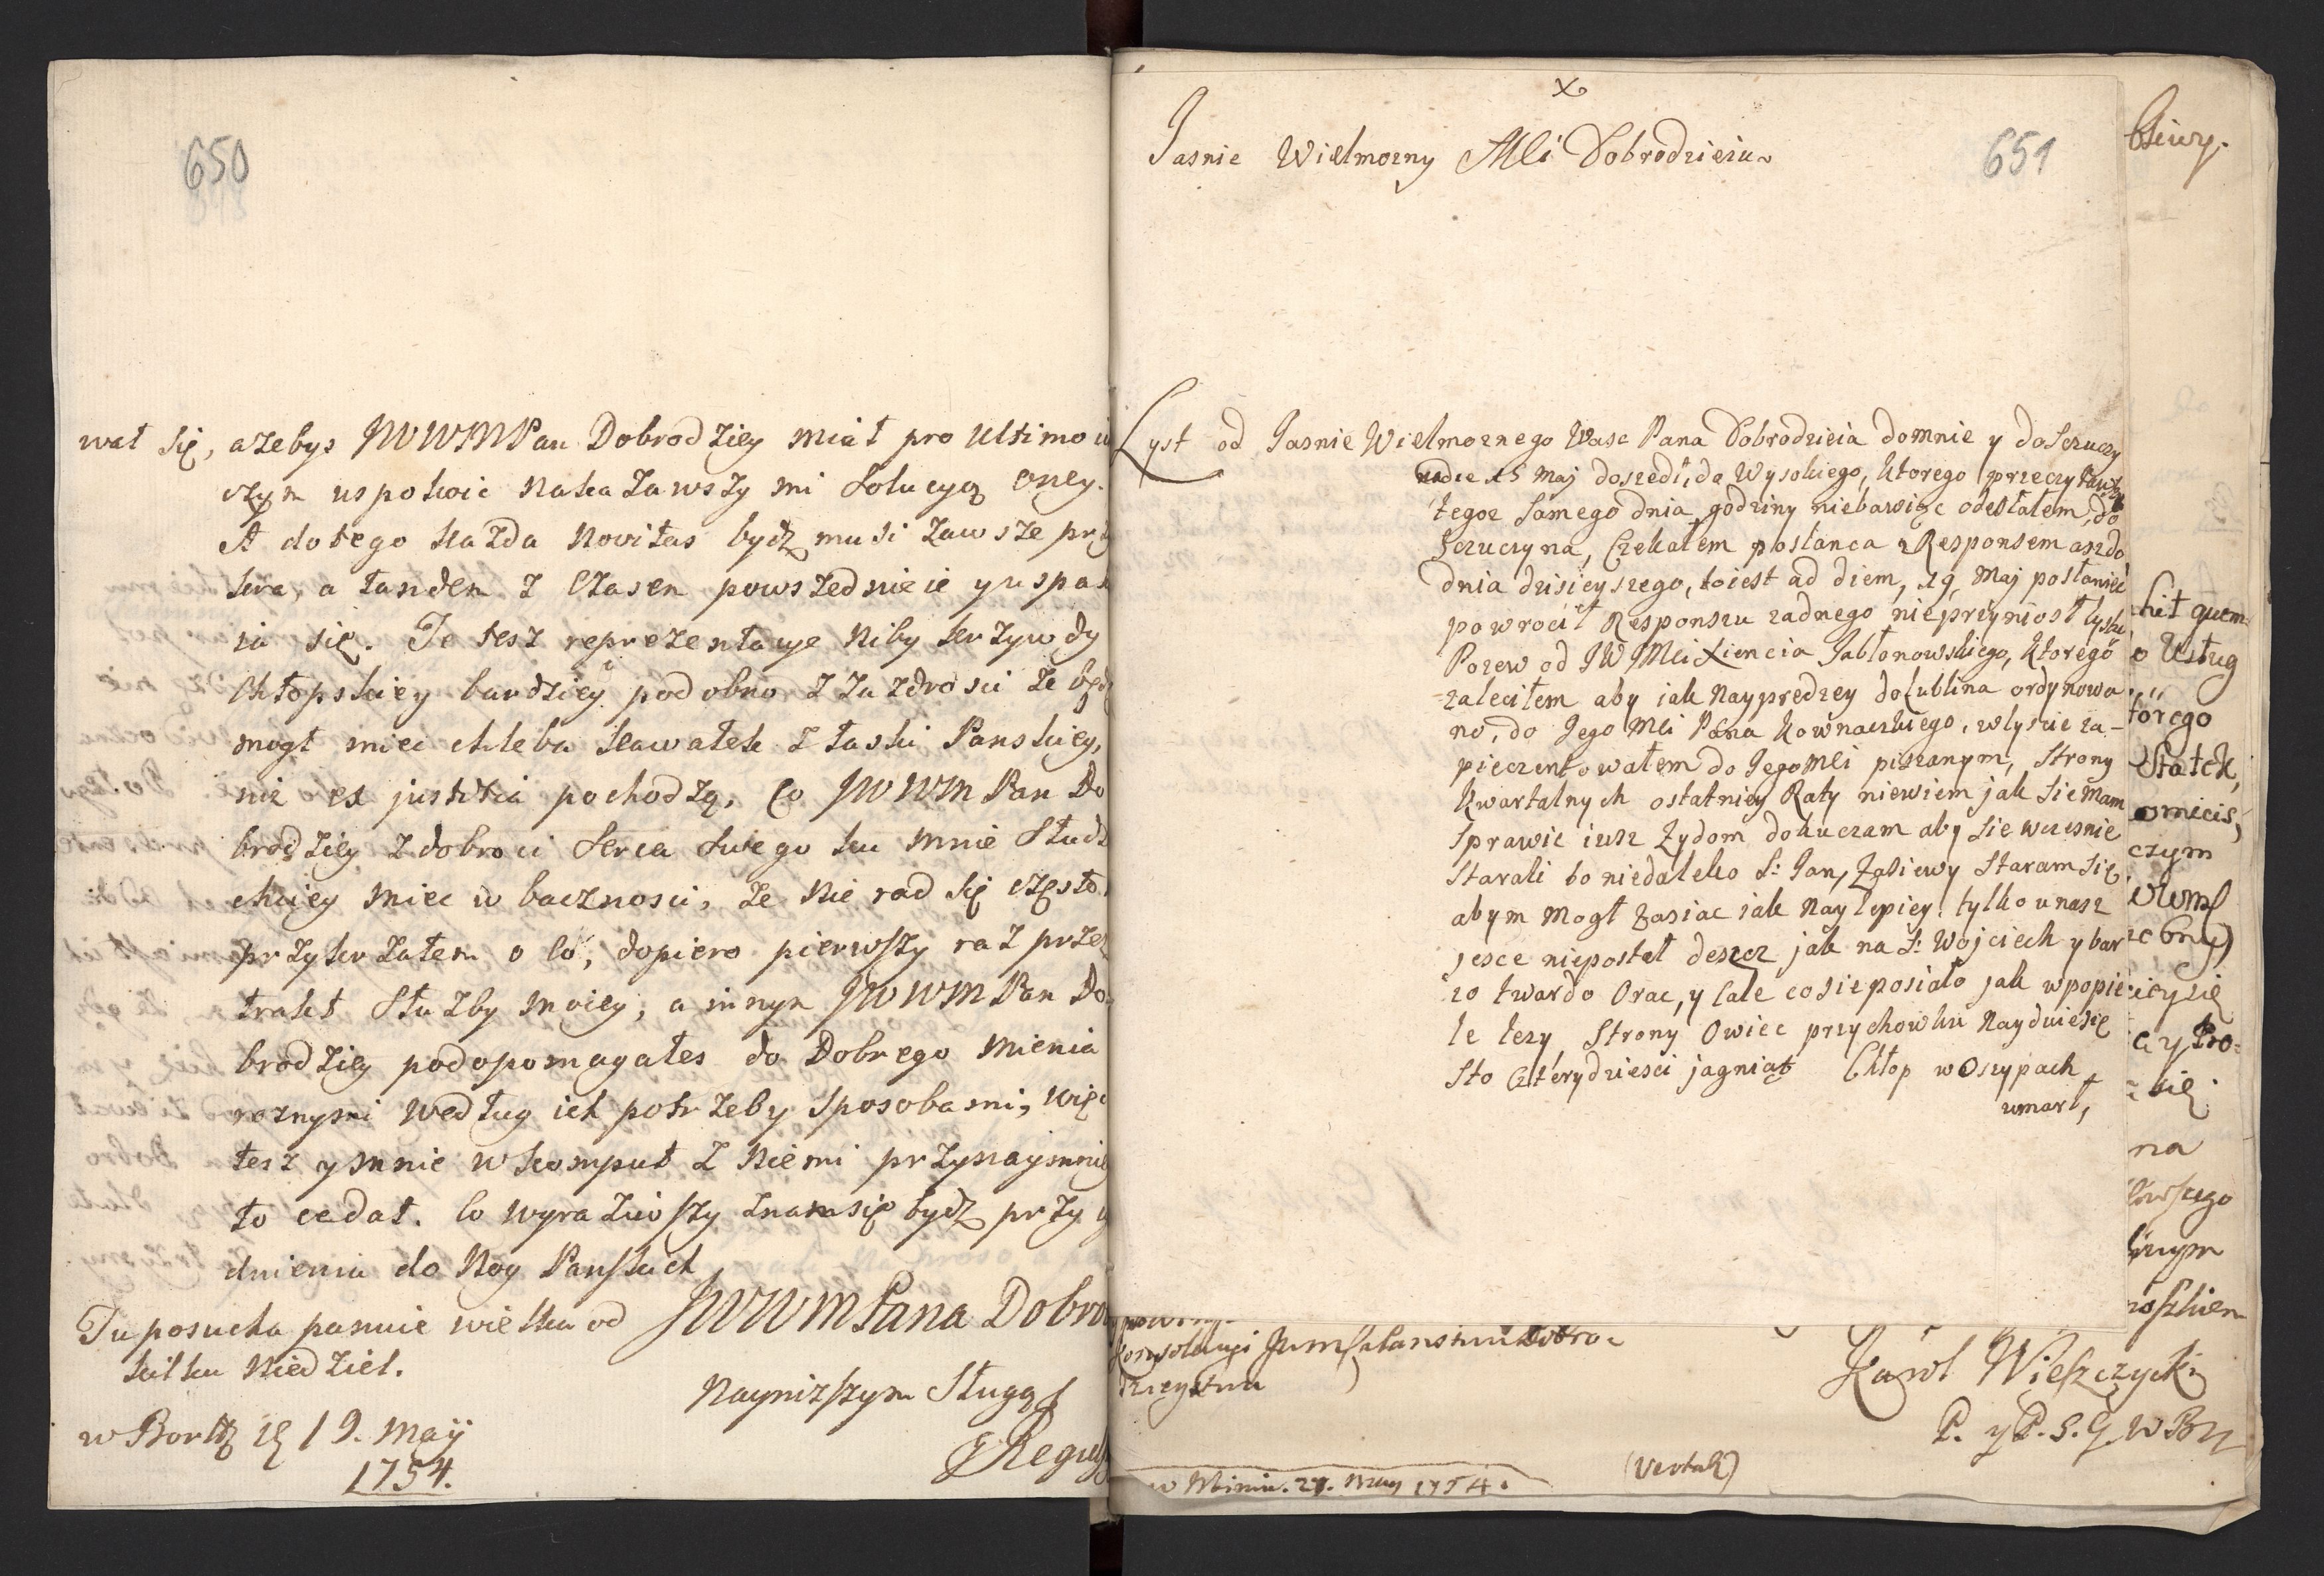 650
wał się, ażebys JWWMPan Dobrodziey miał pro Ultimo
czym uspokoic nakazawszy mi Solucyą oney.
A dotego każda Novitas bydz musi zawsze przy
kra, a tandem z czasem powszednieie y uspaka
ia się. Te tesz reprezentacye niby krzywdy
Chłopskiey bardziey podobno z zazdrosci że będę
mogł miec chleba kawałek z łaski Panskiey,
niz ex justitia pochodzą, Co JWWM Pan Do
brodziey z dobroci serca swego ku mnie Słudze
chciey miec w bacznosci, że nie rad się często
przykrzałem o co, dopiero pierwszy raz przez
trakt Służby moiey, a innym JWWM Pan Do-
brodziey podopomagałes do Dobrego mienia
roznymi według ich potrzeby sposobami, więc
tesz y mnie w komput z niemi przynaymniey
to cedat. Co wyraziwszy znam się bydz przy
dnieniu do Nog Panskich
JWWMPana Dobro
Tu posucha panuie wielka od
kilku Niedziel.
Nayniższym Sługą
w Borkq 19. Maij
1754.
651
Jasnie Wielmozny Mći Dobrodzieiu
Lyst od Jasnie Wielmoznego Wasc Pana Dobrodzieia domnie y doSczuczy
nadie 15 Maj doszedł, do Wysokiego, ktorego przeczytawszy
tegoz samego dnia, godziny niebawiąc odesłałem, do
Sczuczyna, Czekałem posłanca z Responsem aszdo
dnia dzisieyszego, toiest ad diem, 19, Maj posłaniec
powrocił Responsu zadnego nieprzyniosł tylko
Pozew od JW JMci Xiencia Jabłonowskiego, ktorego
zaleciłem aby iak nayprędzey doLublina ordynowa
no, do Jego Mći Pana Kownackiego, wlyscie za-
pieczentowałem do JegoMći pisanym, Strony
kwartalnych ostatniey Raty niewiem jak sie mam
Sprawic iusz Zydom dokuczam aby sie wczesnie
starali bo niedaleko S: Jan, Zasiewy Staram się
abym mogł zasiac iak naylepiey, tylko unasz
jesce niepostał deszcz jak na S: Wojciech y bar
zo twardo Orac, y cale co sie posiało jak wpopie
le lezy Strony Owiec przychowku Naydzie się
Sto Czterydziesci jagniąt Chłop w Oszypach
umarł,
chit quem
o Usług
torego
Statek,
czym
icy się
się.
na
Dobro-
Karol Wieszczycki
P. y P. S. G. w
(Vertatr)
1754.